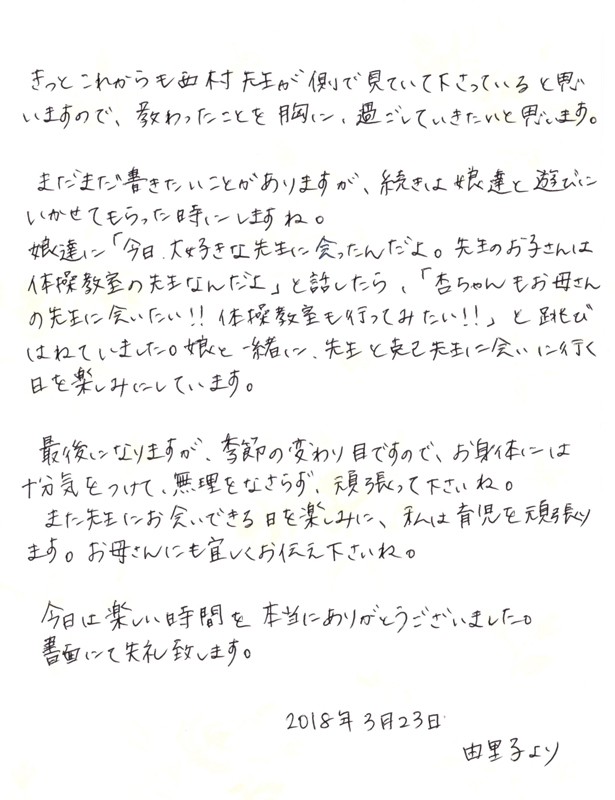 きっとこれからも西村先生が側で見ていて下さっていると思
いますので、教わったことを胸に、過ごしていきたいと思います。
まだまだ書きたいことがありますが、続きは娘達と遊びに
いかせてもらった時にしますね。
娘達に「今日、大好きな先生に会ったんだよ。先生のお子さんは
体操教室の先生なんだよ」と話したら、「杏ちゃんもお母さん
の先生に会いたい!!体操教室も行ってみたい!!」と跳び
はねていました。娘と一緒に、先生と克己先生に会いに行く
日を楽しみにしています。
最後になりますが、季節の変わり目ですので、お身体には
十分気をつけて、無理をなさらず、頑張って下さいね。
また先生にお会いできる日を楽しみに、私は育児を頑張り
ます。お母さんにも宜しくお伝え下さいね。
今日は楽しい時間を本当にありがとうございました。
書面にて失礼致します。
2018年3月23日
由里子より